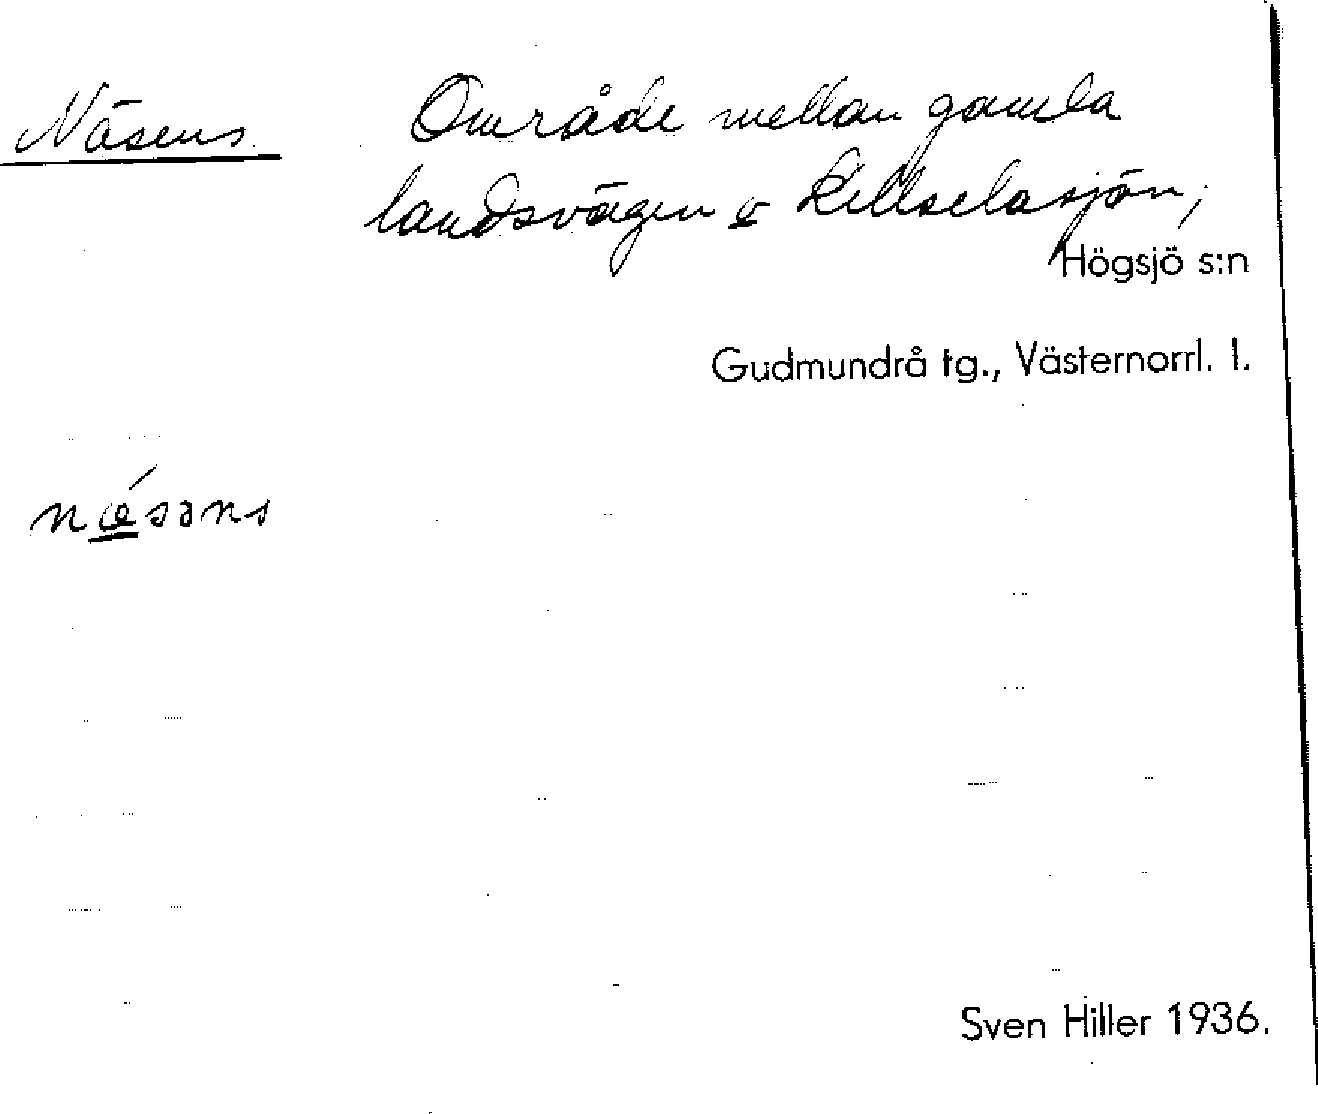 Näsens. Område mellan gamla
landsvägen o Killselasjön,
Högsjö s:n
Gudmundrå tg., Västernorrl. l.
nǽ̲səns
Sven Hiller 1936.